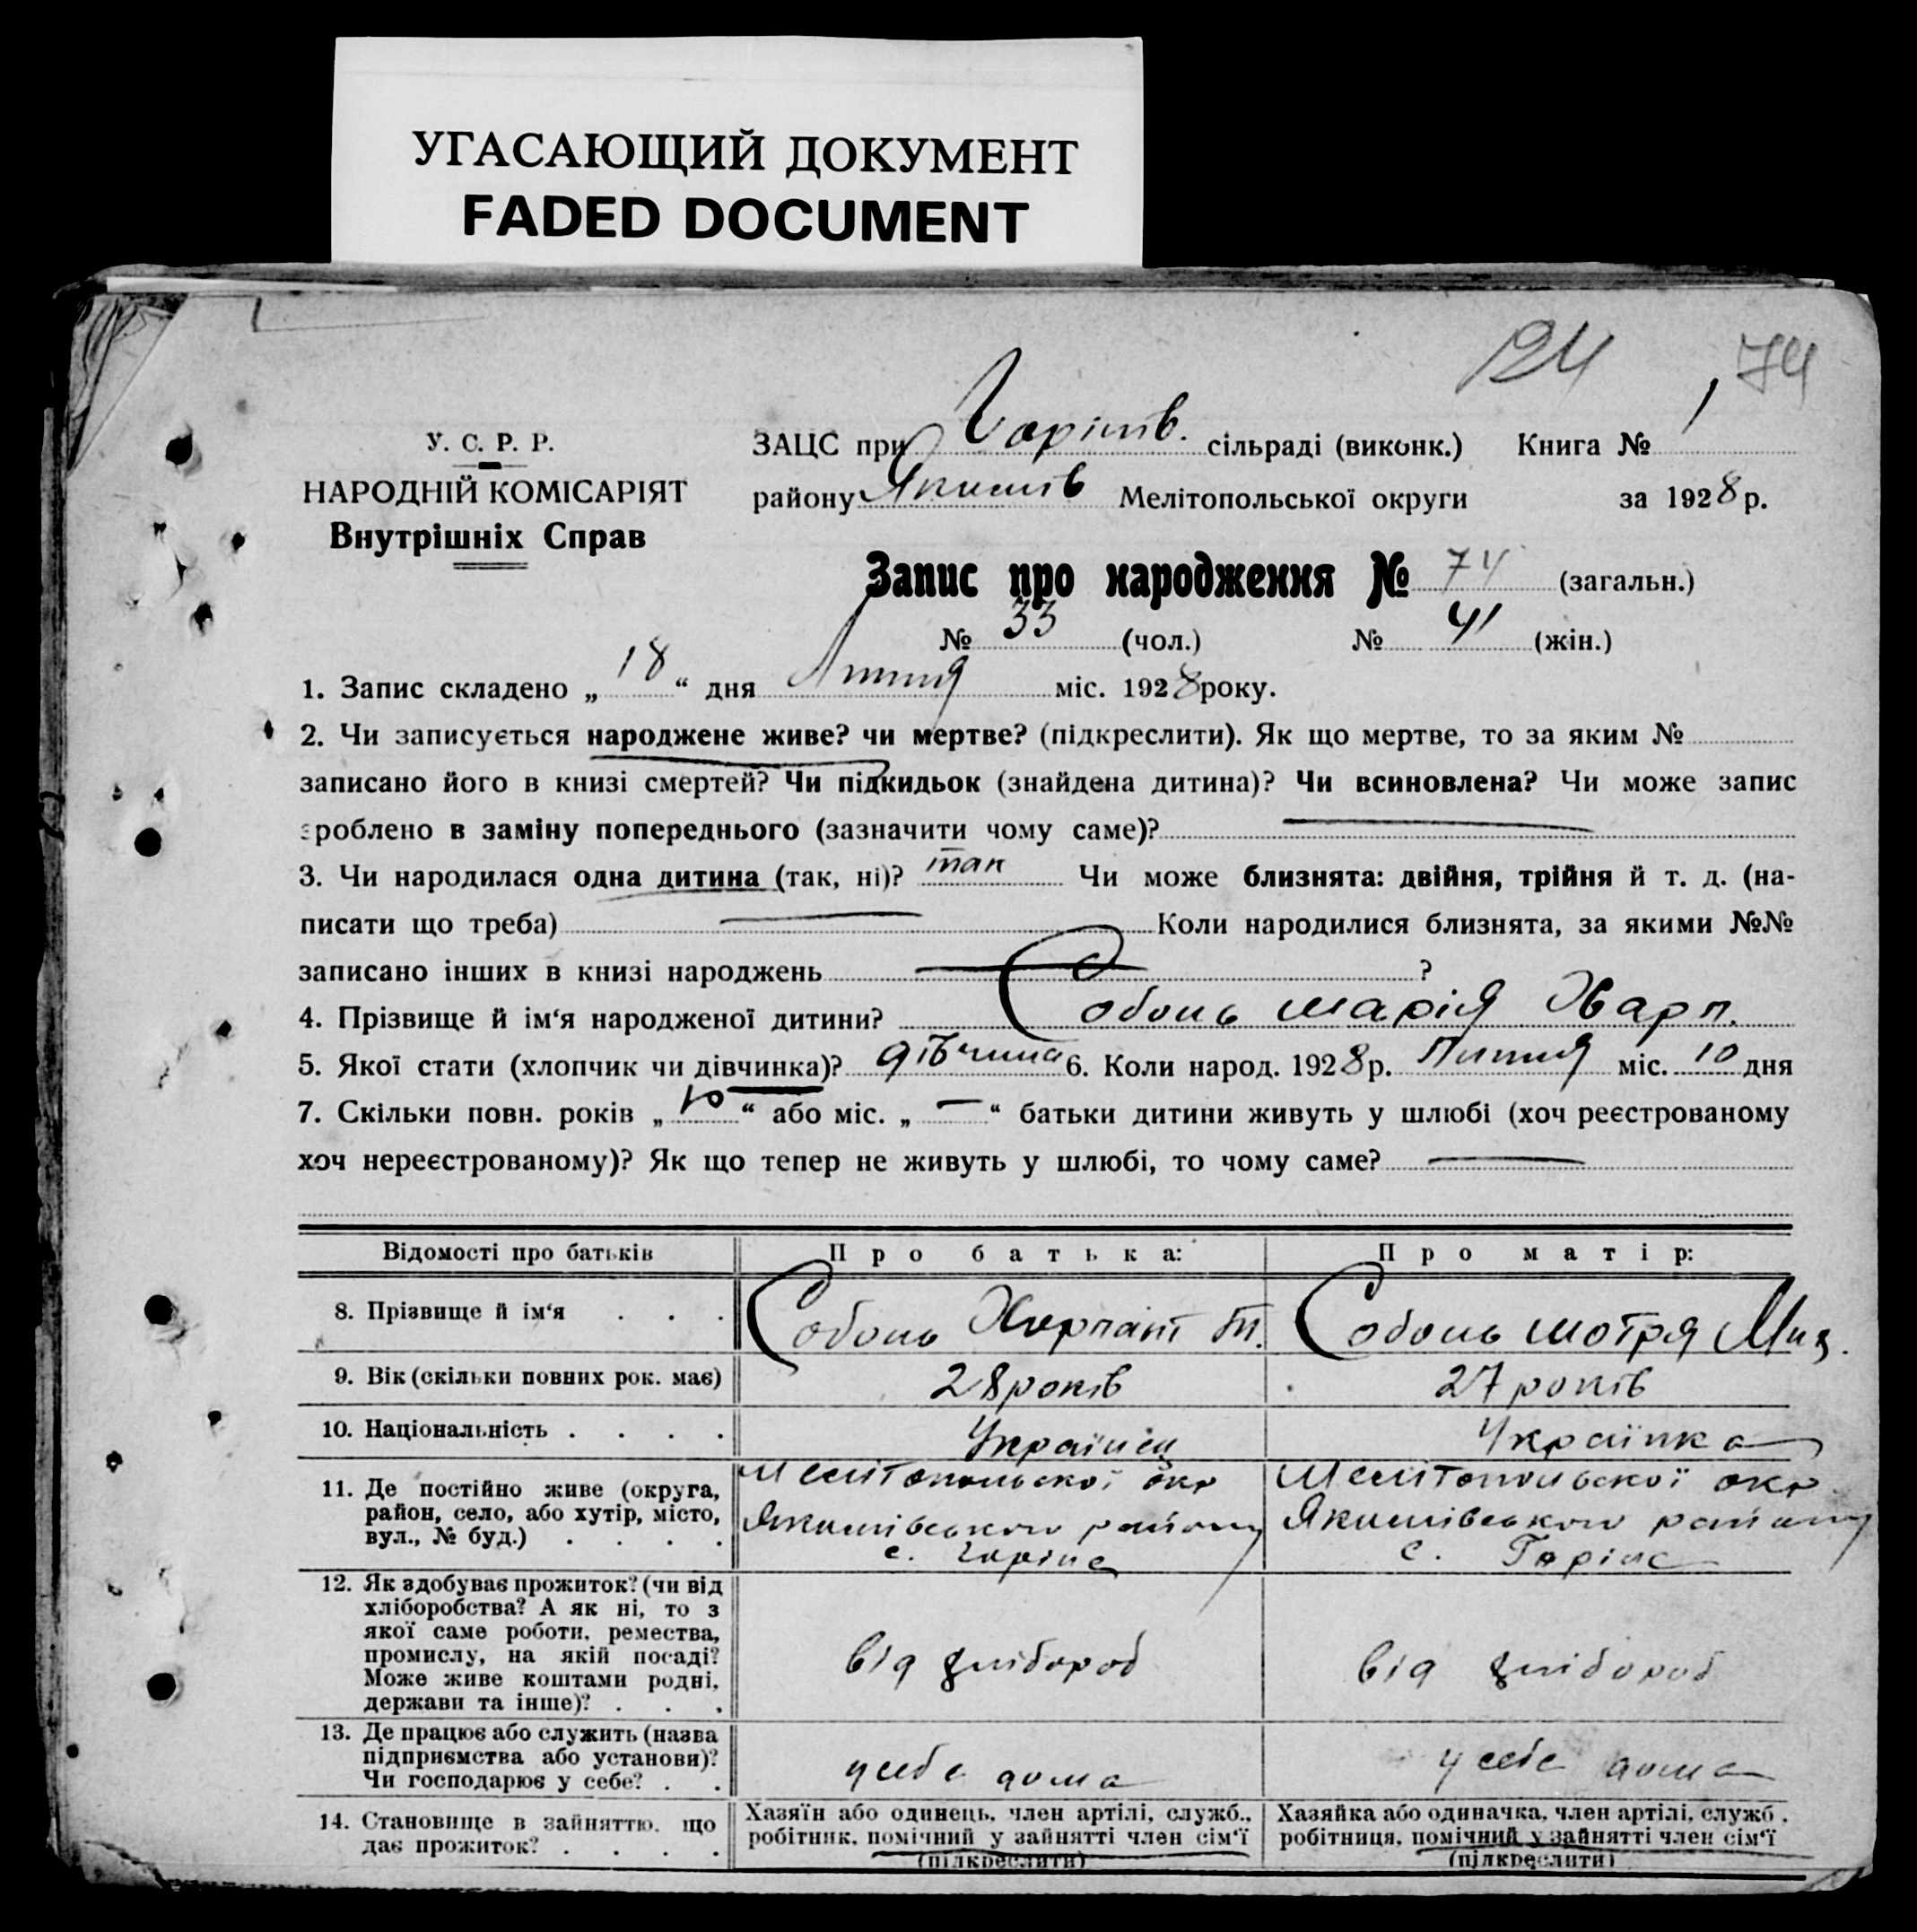 УГАСАЮЩИЙ ДОКУМЕНТ
FADED DOCUMENT
124 74
У. С. Р. Р.
НАРОДНІЙ КОМІСАРІЯТ
Внутрішніх Справ
ЗАЦС при сільраді (виконк.) Книга № 1
району Якимів Мелітопольської округи за 1928 р.
Запис про народження № 74 (загальн.)
№ 33 (чол.) № 41 (жін.)
1. Запис складено „ 18 “ дня Липня міс. 1928 року.
2. Чи записується народжене живе? чи мертве? (підкреслити). Як що мертве, то за яким №
записано його в книзі смертей? Чи підкидьок (знайдена дитина)? Чи всиновлена? Чи може запис
зроблено в заміну попереднього (зазначити чому саме)?
3. Чи народилася одна дитина (так, ні)? так Чи може близнята: двійня, трійня й т. д. (на-
писати що треба) — Коли народилися близнята, за якими №№
записано інших в книзі народжень — ?
4. Прізвище й ім‘я народженої дитини? Собонь Марія Харл.
5. Якої стати (хлопчик чи дівчинка)? дівчина 6. Коли народ. 1928 р. Липня міс. 10 дня
7. Скільки повн. років „ 10 “ або міс. „ — “ батьки дитини живуть у шлюбі (хоч реєстрованому
хоч нереєстрованому)? Як що тепер не живуть у шлюбі, то чому саме? —
Відомості про батьків Про батька: Про матір:
8. Прізвище й ім‘я . . . Собонь Собонь Мотря
9. Вік (скільки повних рок. має) 28 років 27 років
10. Національність . . . . Українец Українка
11. Де постійно живе (округа,
район, село, або хутір, місто,
вул., № буд.) . . . .
Мелітопольскої окр
Якимівського району
с. Горіле
Мелітопольскої окр.
Якимівського району
с. Горіле
12. Як здобуває прожиток? (чи від
хліборобства? А як ні, то з
якої саме роботи, ремества,
промислу, на якій посаді?
Може живе коштами родні,
держави та інше)? . . .
від хлібороб
від хлібороб
13. Де працює або служить (назва
підприємства або установи)?
Чи господарює у себе? . .
у себе дома
у себе дома
14. Становище в зайняттю, що
дає прожиток? . . . .
Хазяїн або одинець, член артілі, служб.,
робітник, помічний у зайнятті член сім‘ї
(підкреслити)
Хазяйка або одиначка, член артілі, служб.,
робітниця, помічний у зайнятті член сім‘ї
(підкреслити)